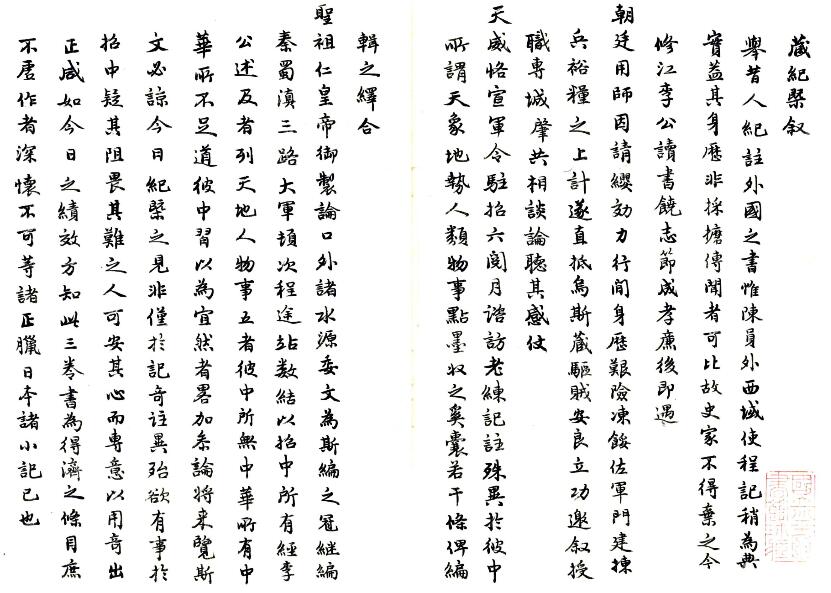 藏紀槩叙
舉昔人紀註外國之書惟陳員外西域使程記稍為典
實益其身歷非採摭傳聞者可比故史家不得棄之今
修江李公讀書饒志節成孝廉後即遇
朝廷用師因請纓効力行間身歷艱險凍餒佐軍門建揀
兵裕糧之上計遂直抵烏斯藏驅賊安良立功邀叙授
職專城肇共相談論聽其感仗
天威恪宣軍令駐招六閱月諮訪老練記註殊異於彼中
所謂天象地勢人類物事點墨奴之奚囊若干條俾編
輯之繹合
聖祖仁皇帝御製論口外諸水源委文為斯編之冠継編
秦蜀滇三路大軍頓次程途站数結以招中所有經李
公述及者列天地人物事五者彼中所無中華所有中
華所不足道彼中習以為宜然者畧加叅論将来覽斯
文必諒今日紀槩之見非僅於記奇註異殆欲有事於
招中疑其阻畏其難之人可安其心而專意以用竒出
正咸如今日之績效方知此三卷書為得濟之條目庶
不虛作者深懷不可等諸正臘日本諸小記已也